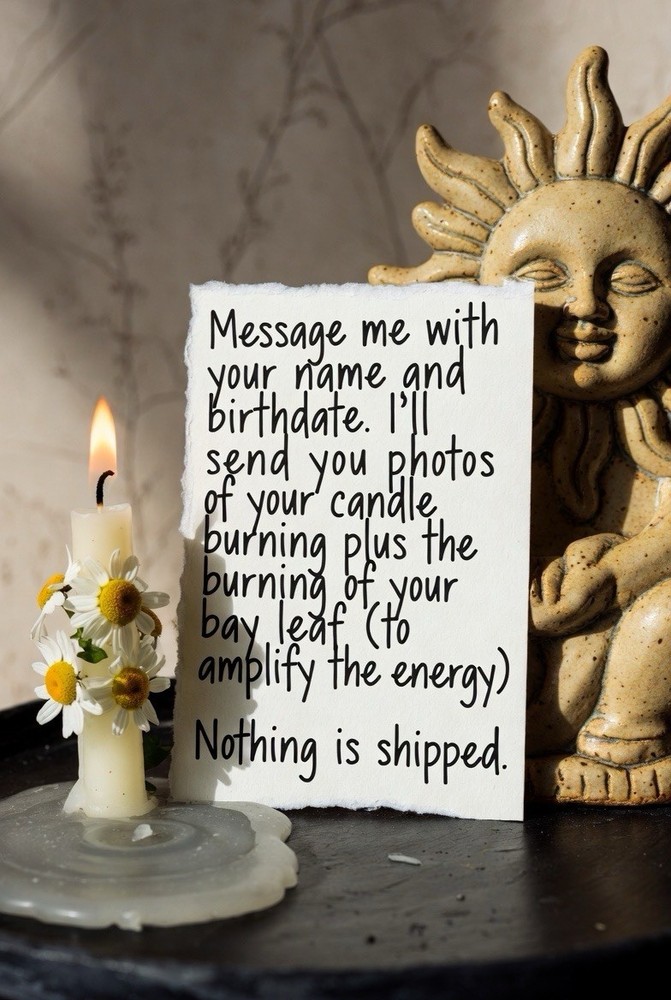 Message me with
your name and
birthdate. I'll
send you photos
of your candle
burning plus the
burning of your
bay leaf (to
amplify the energy)
Nothing is shipped.